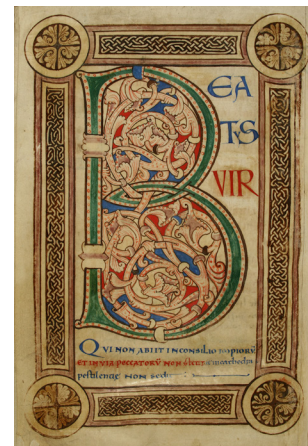 BEA
TVS
VIR
QVI NON ABIIT IN CONSILIO IMPIORŪ
ET IN VIA PECCATORŪ NON STETIT & in cathedra
pestilentiae NON sedit